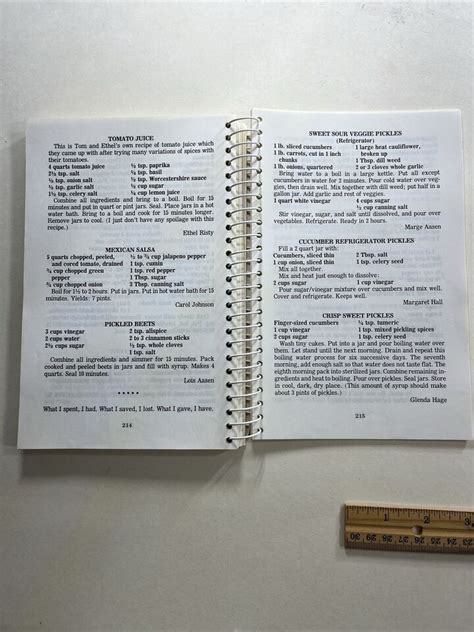 TOMATO JUICE
This is Tom and Ethel's own recipe of tomato juice which
they came up with after trying many variations of spices with
their tomatoes.
4 quarts tomato juice ¼ tsp. paprika
2½ tsp. salt ¼ tsp. basil
½ tsp. onion salt ½ tsp. Worcestershire sauce
½ tsp. garlic salt ½ cup sugar
½ tsp. celery salt ¼ cup lemon juice
Combine all ingredients and bring to a boil. Boil for 15
minutes and put in quart or pint jars. Seal. Place jars in a hot
water bath. Bring to a boil and cook for 15 minutes longer.
Remove jars to cool. (I just don't have any spoilage with this
recipe.)
Ethel Risty
MEXICAN SALSA
5 quarts chopped, peeled, ½ to ¾ cup jalapeno pepper
and cored tomato, drained 1 tsp. red pepper
¾ cup chopped green 1 tsp. cumin
pepper 1 Tbsp. sugar
¾ cup chopped onion 3 Tbsp. canning salt
Boil for 1½ to 2 hours. Put in jars. Put in hot water bath for 15
minutes. Yields: 7 pints.
Carol Johnson
PICKLED BEETS
3 cups vinegar 2 tsp. allspice
2 cups water 2 to 3 cinnamon sticks
2½ cups sugar ½ tsp. whole cloves
1 tsp. salt
Combine all ingredients and simmer for 15 minutes. Pack
cooked and peeled beets in jars and fill with syrup. Makes 4
quarts. Seal 10 minutes.
Lois Aasen
* * * * *
What I spent, I had. What I saved, I lost. What I gave, I have.
214
SWEET SOUR VEGGIE PICKLES
(Refrigerator)
1 lb. sliced cucumbers 1 large heat cauliflower,
1 lb. carrots, cut in 1 inch broken up
chunks 1 Tbsp. dill weed
1 large onion, sliced in rings 2 or 3 cloves whole garlic
Bring water to a boil in a large kettle. Put all except
cucumbers in water for 2 minutes. Pour cold water over veg-
gies, then drain well. Mix together with dill weed; put half in a
gallon jar. Add garlic and rest of veggies.
1 quart white vinegar 4 cups sugar
½ cup canning salt
Stir vinegar, sugar, and salt until dissolved, and pour over
vegetables. Refrigerate. Ready in 2 hours.
Marge Aasen
CUCUMBER REFRIGERATOR PICKLES
Fill a 2 quart jar with:
Cucumbers, sliced thin 2 Tbsp. salt
1 cup onion, sliced thin 1 tsp. celery seed
Mix all together.
Mix and heat just enough to dissolve:
2 cups sugar 1 cup vinegar
Pour sugar/vinegar mixture over cucumbers and mix well.
Cover and refrigerate. Keeps well.
Margaret Hall
CRISP SWEET PICKLES
Finger-sized cucumbers ½ tsp. turmeric
1 cup vinegar 1 tsp. mixed pickling spices
2 cups sugar ½ tsp. celery seed
Wash tiny cukes. Put into a jar and pour boiling water over
them. Let stand until the next morning. Drain and repeat this
boiling water process for six successive days. The seventh
morning, add enough salt so that water does not taste flat. The
eighth morning pack into sterilized jars. Combine remaining in-
gredients and heat to boiling. Pour over pickles. Seal jars. Store
in cool, dark, dry place. (This amount of syrup should make
about 3 pints of pickles.)
Glenda Hage
215
1 2 3
30 29 28 27 26 25 24 23